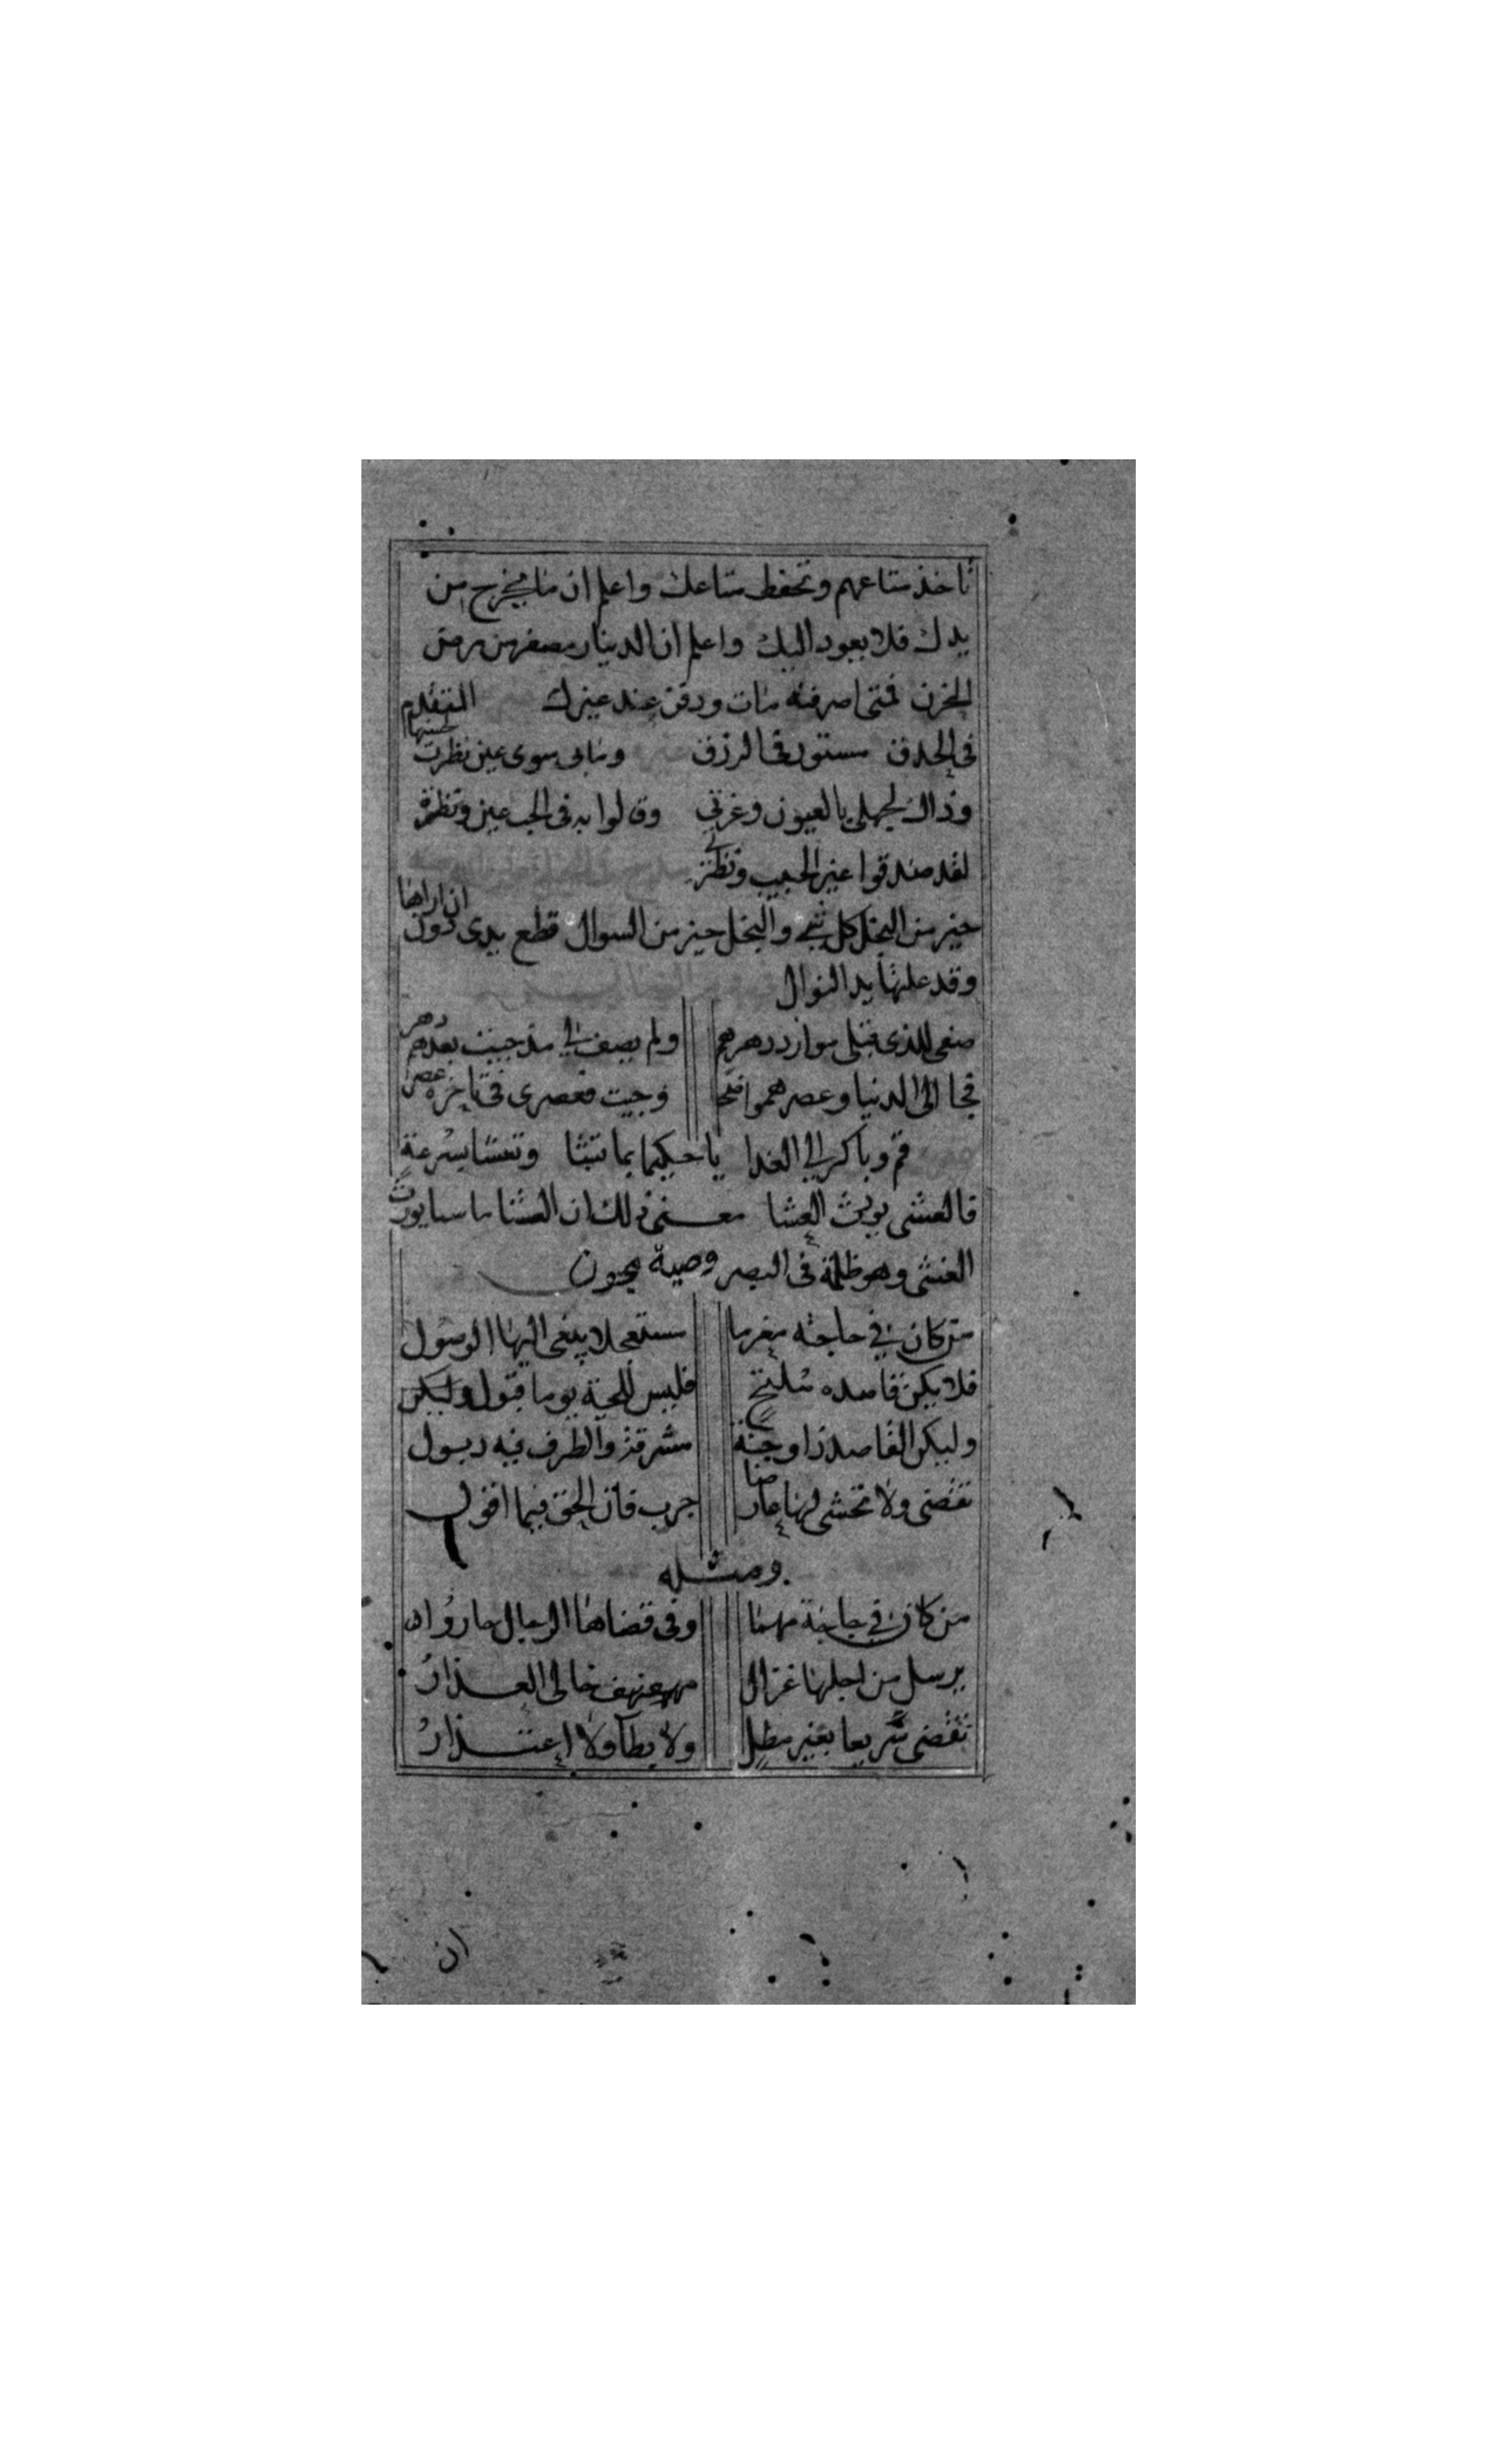 تاخذ متاعهم وتحفظ متاعك واعلم ان ما يخرج من
يدك فلا يعود اليك واعلم ان الدينار مصفر من مرض
الخزن فمتى اصرفته مات ودفن عند غيرك المتقدم
في الحذق مستور في الرزق وما بي سوى عين نظرت لحسنها
وذاك لجهلي بالعيون وغرتي وقالوا به في الحب عين ونظرة
لقد صدقوا عين الحبيب ونظرتي
خير من البخل كل شيء والبخل خير من السوال قطع يدي دون ان اراها
وقد علتها يد النوال
صفى للذي قبلي موارد دهرهم ولم يصف لي مذ جيت بعدهم دهر
فجا الى الدنيا وعصرهموا وجيت فعصري في تاخره عصر
قم وباكر الى الغدا يا حكيما بما تشا وتعشا بسرعة
فالعشى يورث العشا معنى ذلك ان العشا ماسيا يورث
العشى وهو ظلمة في البصر وصية مجون
من كان في حاجته مغرما مستعجلا يبغي اليها الوصول
فلا يكن قاصده ملتحي فليس للحية يوما قبول وليكن
وليكن القاصد ذا وجنة مشرقة والطرف فيه ذبول
تقضى ولا تخشى لها عارضا جرب فان الحق فيما اقول
ومثله
من كان في حاجة مهما وفي قضاها الرجال حاروا
يرسل من اجلها غزال مهفهف خالى العذار
تقضى سريعا بغير مطل ولا بطا ولا اعتذار